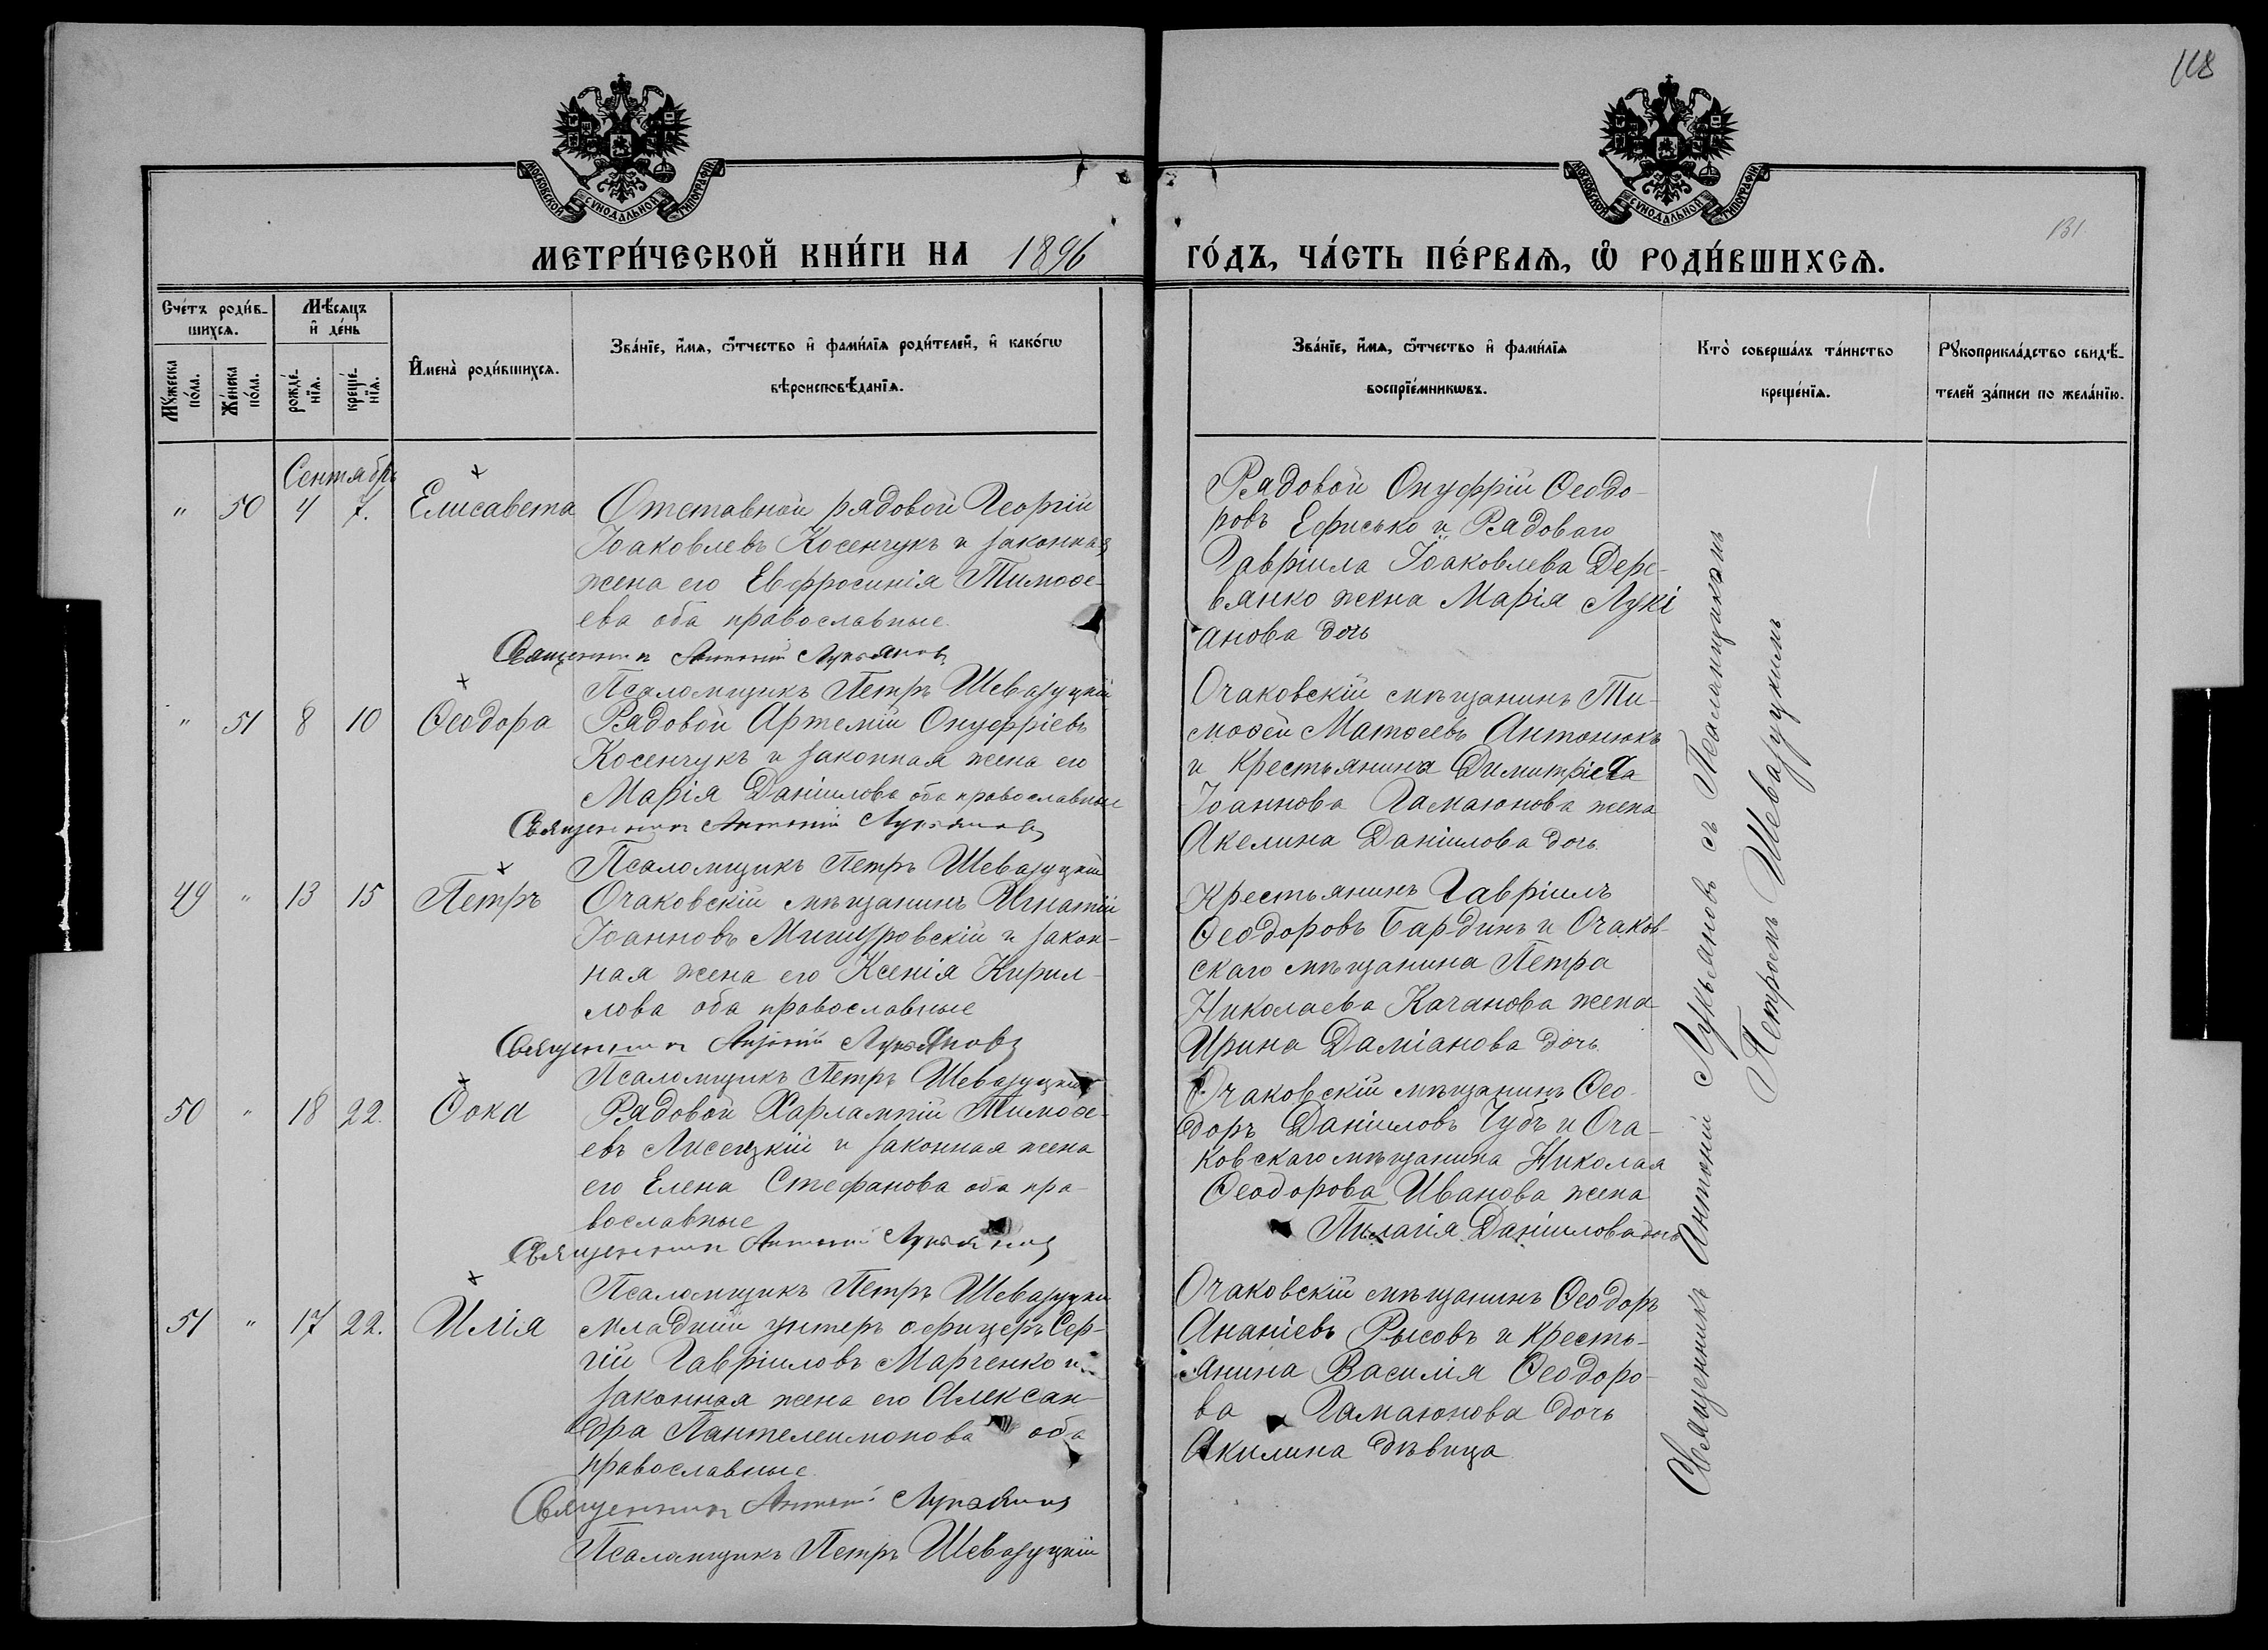 118
МОСКОВСКОЙ СУНОДАЛЬНОЙ ТИПОГРАФІИ
МОСКОВСКОЙ СУНОДАЛЬНОЙ ТИПОГРАФІИ
131
МЕТРИ́ЧЕСКОЙ КНИ́ГИ НА 1896 ГО́ДЪ, ЧА́СТЬ ПЕ́РВАѦ, Ѡ҆ РОДИ́ВШИХСѦ.
Сче́тъ роди́в-
шихсѧ.
Мѣ́сѧцъ
и҆ де́нь
Мꙋ́жеска
по́ла.
Же́нска
по́ла.
рожде́-
нїѧ.
креще́-
нїѧ.
И҆мена̀ роди́вшихсѧ.
Зва́нїе, и҆́мѧ, ѻ҆́тчество и҆ фами́лїѧ роди́телей, и҆ како́гѡ
вѣроисповѣ́данїѧ.
Зва́нїе, и҆́мѧ, ѻ҆́тчество и҆ фами́лїѧ
воспрїе́мникѡвъ.
Кто̀ соверша́лъ та́инство
креще́нїѧ.
Рꙋкоприкла́дство свидѣ́-
телей за́писи по жела́нїю.
Сентябрь
" 50 4 7. Елисавета
Отставной рядовой Георгій
Іоаковлевъ Косенчукъ и законная
жена его Евфросинія Тимоѳе-
ева оба православные.
Священникъ Антоній Лукьяновъ
Псаломщикъ Петръ Шевазуцкій
Рядовой Онуфрій Ѳеодо-
ровъ Ефисько и Рядоваго
Гавріила Іоаковлева Дере-
вянко жена Марія Лукі
анова дочь
" 51 8 10 Ѳеодора
Рядовой Артемій Онуфріевъ
Косенчукъ и законная жена его
Марія Даніилова оба православные
Священникъ Антоній Лукьяновъ
Псаломщикъ Петръ Шевазуцкій
Очаковскій мѣщанинъ Ти-
моѳей Матѳеевъ Антонюкъ
и Крестьянина Димитріева
Іоаннова Гамаюнова жена
Акелина Даніилова дочь.
49 " 13 15 Петръ
Очаковскій мѣщанинъ Игнатій
Іоанновъ Мишуровскій и закон-
ная жена его Ксенія Кирил-
лова оба православные
Священникъ Антоній Лукьяновъ
Псаломщикъ Петръ Шевазуцкій
Крестьянинъ Гавріилъ
Ѳеодоровъ Бардинъ и Очаков-
скаго мѣщанина Петра
Николаева Качанова жена
Ирина Даміанова дочь.
50 " 18 22. Ѳока
Рядовой Харлампій Тимоѳе-
евъ Лисецкій и законная жена
его Елена Стефанова оба пра-
вославные
Священникъ Антоній Лукьяновъ
Псаломщикъ Петръ Шевазуцкій
Очаковскій мѣщанинъ Ѳео-
доръ Даніиловъ Чубъ и Оча-
ковскаго мѣщанина Николая
Ѳеодорова Иванова жена
Пилагія Даніилова дочь
51 " 17 22. Илія
Младшій унтеръ офицеръ Сер-
гій Гавріиловъ Марченко и
законная жена его Алексан-
дра Пантелеимонова оба
православные.
Священникъ Антоній Лукьяновъ
Псаломщикъ Петръ Шевазуцкій
Очаковскій мѣщанинъ Ѳеодоръ
Ананіевъ Рысовъ и Кресть-
янина Василія Ѳеодоро-
ва Гамаюнова дочь
Акилина дѣвица.
Священникъ Антоній Лукьяновъ съ Псаломщикомъ
Петромъ Шевазуцкимъ